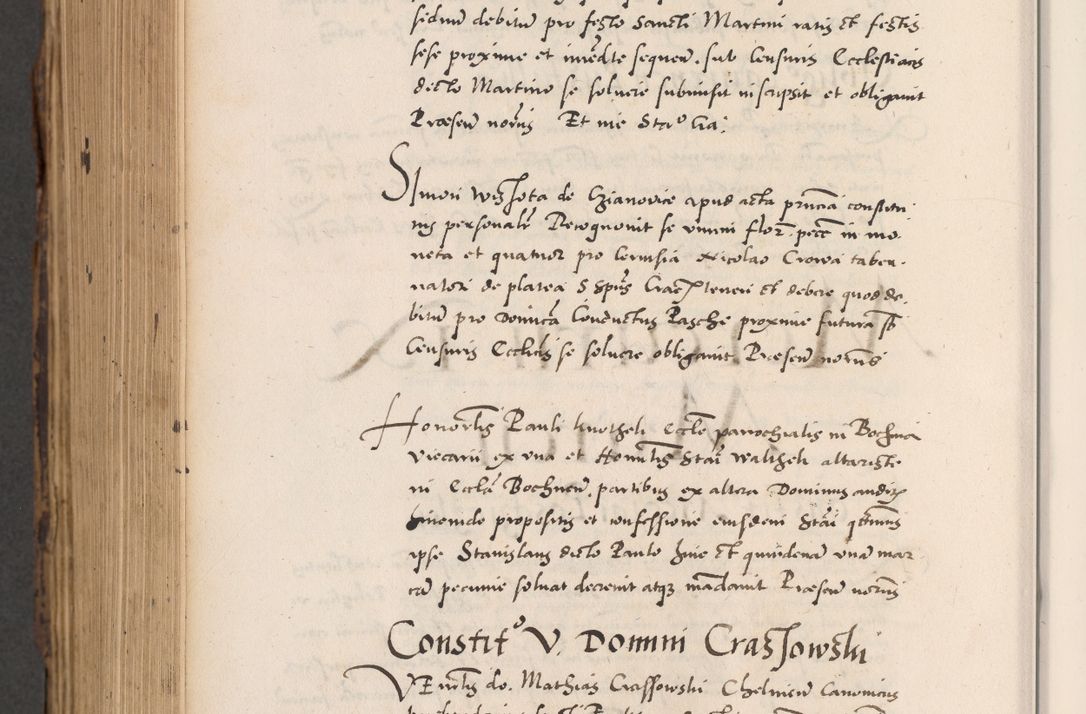 sedium debitum pro festo Sancti Martini ratis et festis
sese proxime et imediate sequen. sub Censuris Ecclesiasticis
dicto Martino se soluere submisit inscripsit et obligauit
Præsen. notarijs Et me Sta:
Simon Wisṡota de Czianouice apud acta prncia constitu
tus personalr Recognouit se vnum flor. pecce in mo
neta et quatuor pro Ceruisia Nicolao Crowa taber
natori de platea S Spus Crac teneri et debere quod de
bitum pro Domica Conductus Pasche proxime futura sb
Censuris Ecclicis se soluere obligauit Præsen. notarijs
Honorlis Pauli Knotheli Eccle parrochialis in Bochnia
viecarii ex vna et Honrlis Stai Waltheli altariste
in Eccla Bochnen. partibus ex altera Dominus audit
hincinde propositis et confessione eiusdem Stai
ipse Stanislaus dicto Paulo hinc et quindenam vnam mar
cam pecunie soluat decreuit atqz mandauit Præsen. notarijs
Constit° V. Domini Crassowski
VEnrlis do. Mathias Crassowski Chelmen. Canonicus